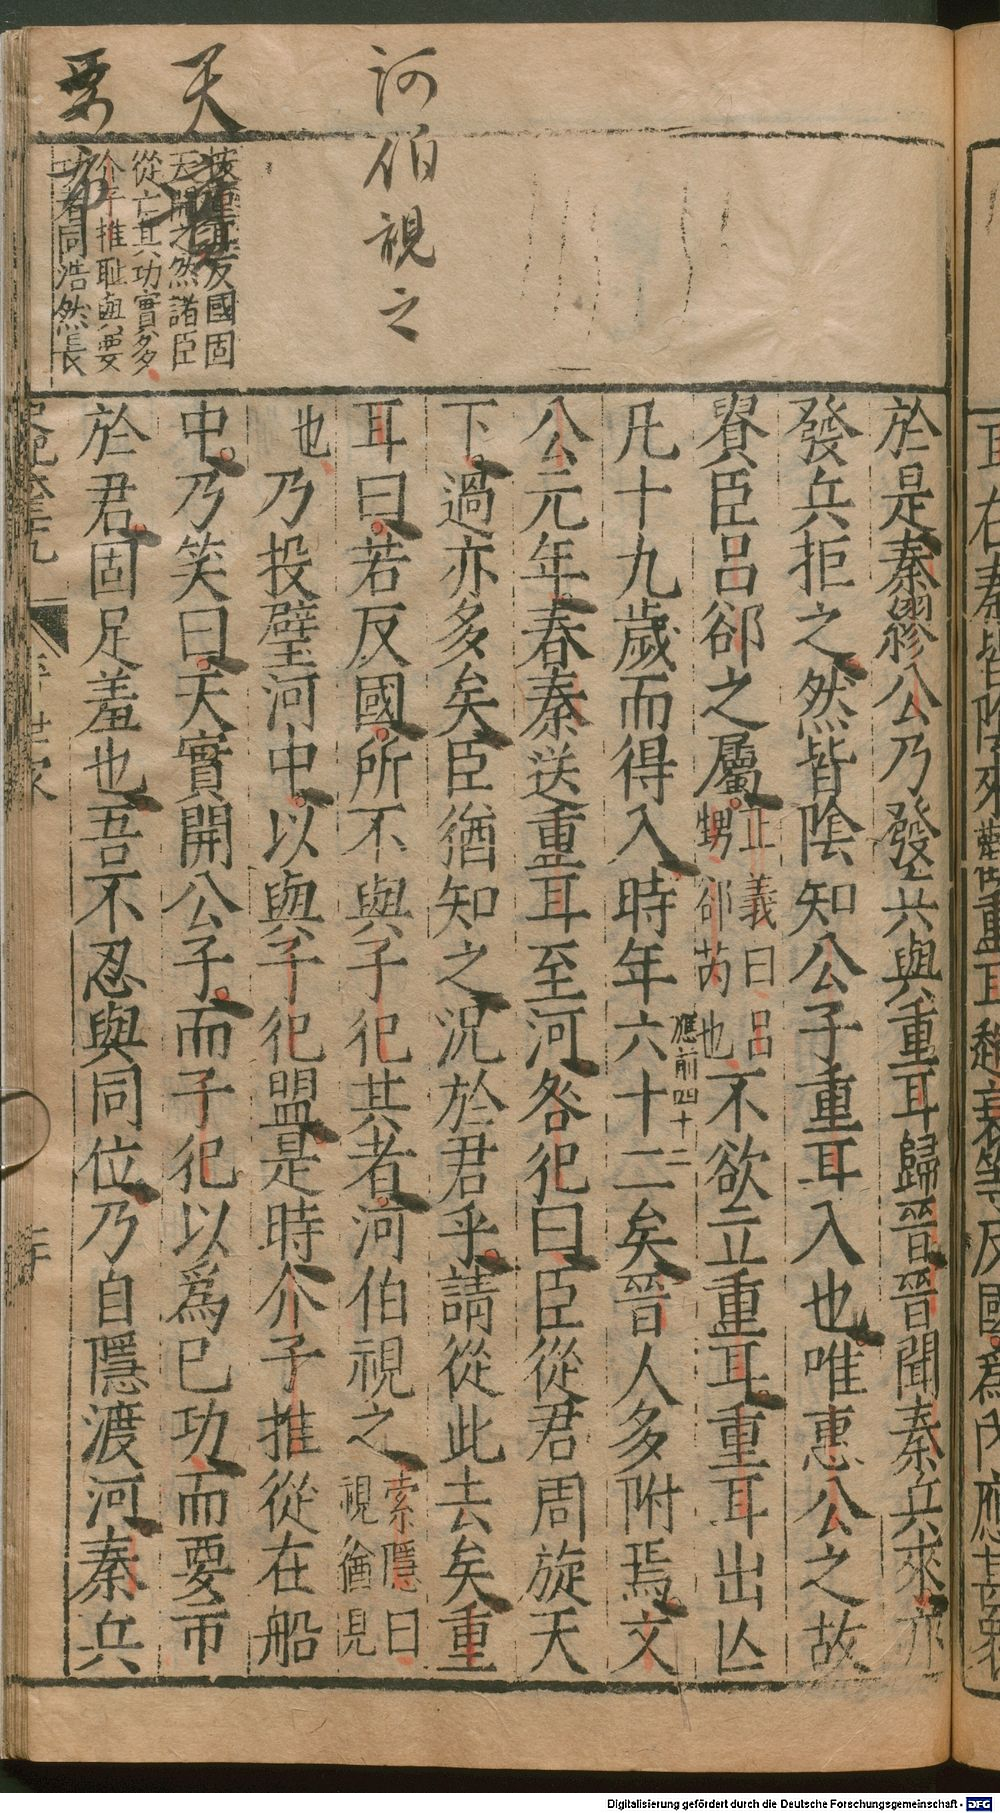 河伯視之
天
要
按重耳反國固
天開之然諸臣
從亡其功實多
介子推恥與要
功者同浩然長
於是秦繆公乃發兵與重耳歸晉晉聞秦兵來亦
發兵拒之然皆陰知公子重耳入也唯惠公之故
貴臣呂郤之屬正義曰呂甥郤芮也不欲立重耳重耳出亡
凡十九歲而得入時年六十二矣晉人多附焉文
應前四十二
公元年春秦送重耳至河咎犯曰臣從君周旋天
下過亦多矣臣猶知之況於君乎請從此去矣重
耳曰若反國所不與子犯共者河伯視之索隱曰視猶見
也乃投璧河中以與子犯盟是時介子推從在船
中乃笑曰天實開公子而子犯以爲已功而要市
於君固足羞也吾不忍與同位乃自隱渡河秦兵
Digitalisierung gefördert durch die Deutsche Forschungsgemeinschaft - DFG